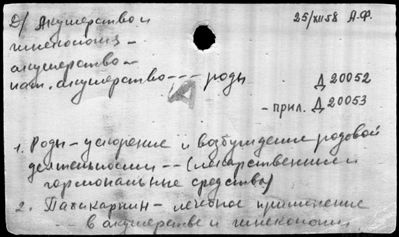 Д/ Акушерство и 25/XII 58 А.Ф.
гинекология –
акушерство –
пат. акушерство --- роды Д 20052
– прил. Д 20053
А
1. Роды – ускорение и возбуждение родовой
деятельности -- (лекарственные и
гормональные средства)
2. Пахикарпин – лечебное применение
-- в акушерстве и гинекологии